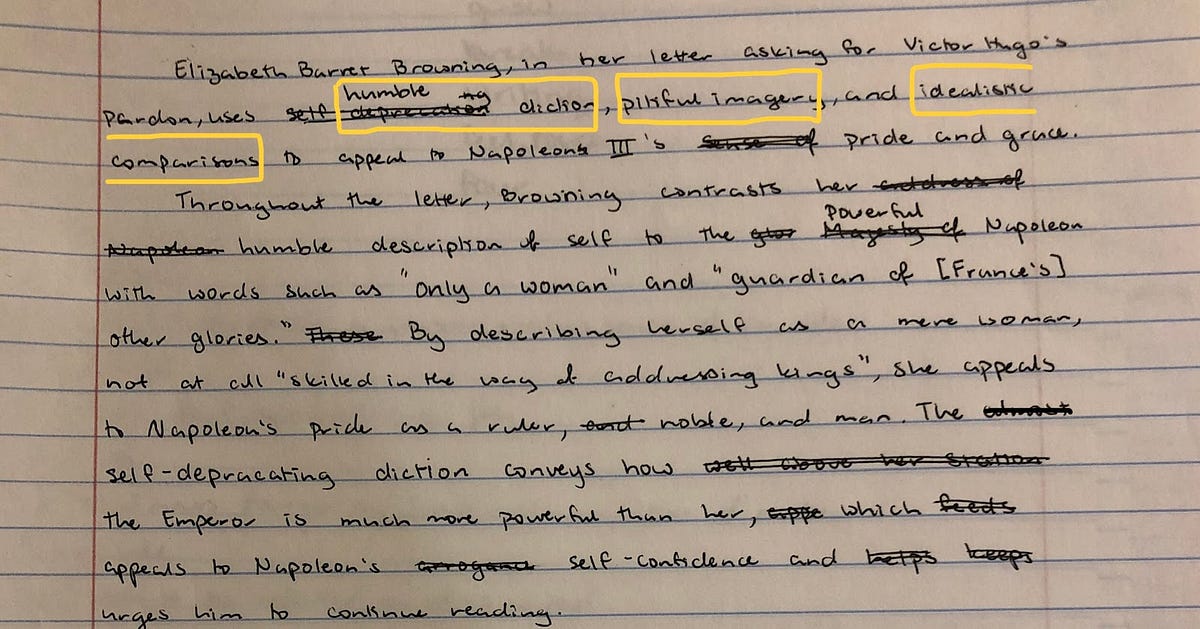 Elizabeth Barret Browning, in her letter asking for Victor Hugo's
humble ng
pardon, uses self deprecation diction, pitiful imagery, and idealistic
comparisons to appeal to Napoleon III's sense of pride and grace.
Throughout the letter, Browning contrasts her address of
powerful
Napoleon humble description of self to the glor Majesty of Napoleon
with words such as "only a woman" and "guardian of [France's]
other glories." These By describing herself as a mere woman,
not at all "skilled in the way of addressing kings", she appeals
to Napoleon's pride as a ruler, and noble, and man. The almost
self-depracating diction conveys how well above her station
the Emperor is much more powerful than her, appe which feeds
appeals to Napoleon's arrogance self-confidence and helps keeps
urges him to continue reading.